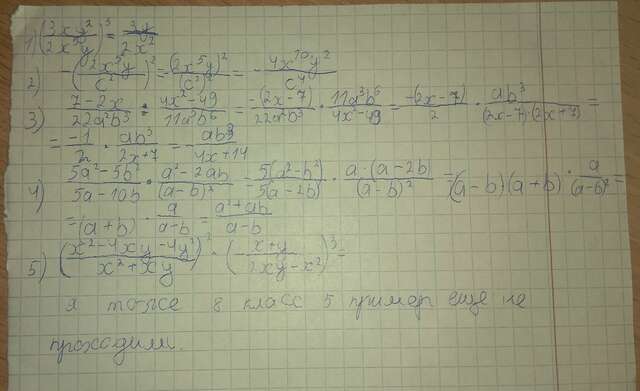 1) (3xy²/2x⁵y)³ = 3y/2x²
2) -(2x⁵y/c²)² = (2x⁵y)²/(c²)² = -4x¹⁰y²/c⁴
3) 7-2x/22a²b³ : 4x²-49/11a³b⁶ = -(2x-7)/22a²b³ · 11a³b⁶/4x²-49 = -(2x-7)/2 · ab³/(2x-7)·(2x+7) =
= -1/2 · ab³/2x+7 = -ab³/4x+14
4) 5a²-5b²/5a-10b · a²-2ab/(a-b)² = 5(a²-b²)/5(a-2b) · a·(a-2b)/(a-b)² = (a-b)(a+b) · a/(a-b)² =
= (a+b) · a/a-b = a²+ab/a-b
5) (x²-4xy-4y²/x²+xy)² · (x+y/2xy-x²)³ =
я тоже 8 класс 5 пример еще не
проходили.